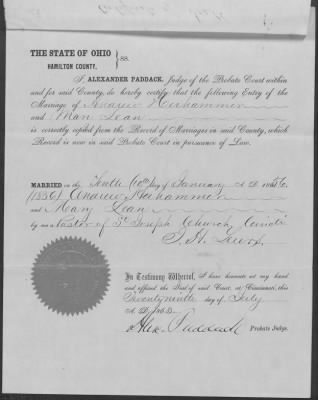 THE STATE OF OHIO
HAMILTON COUNTY, } SS.
I, ALEXANDER PADDACK, Judge of the Probate Court within
and for said County, do hereby certify that the following Entry of the
Marriage of Andrew Herhammer
and Mary Dean
is correctly copied from the Record of Marriages in said County, which
Record is now in said Probate Court in pursuance of Law.
MARRIED on the Tenth (10th) day of January A. D. 1856.
(1856) Andrew Herhammer
and Mary Dean
by me Pastor of St. Joseph Church, Cincinti
In Testimony Whereof, I have hereunto set my hand
and affixed the Seal of said Court, at Cincinnati, this
Twenty ninth day of July
A. D. 188
Alex. Paddack Probate Judge.